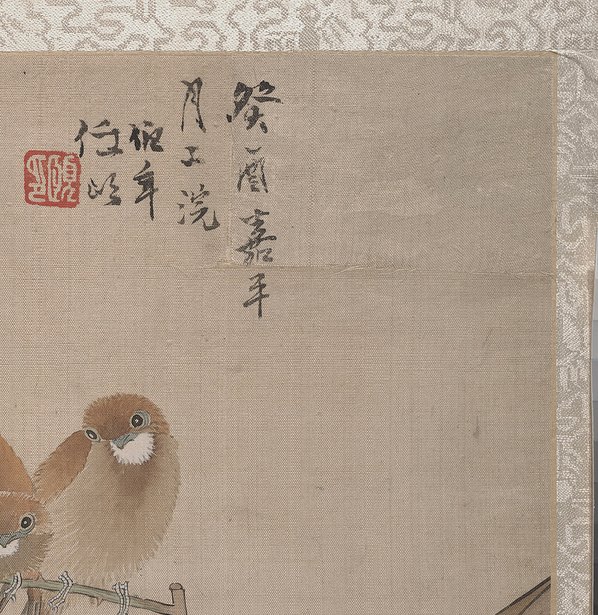 癸酉嘉平
月上浣
伯年
任頤
頤印